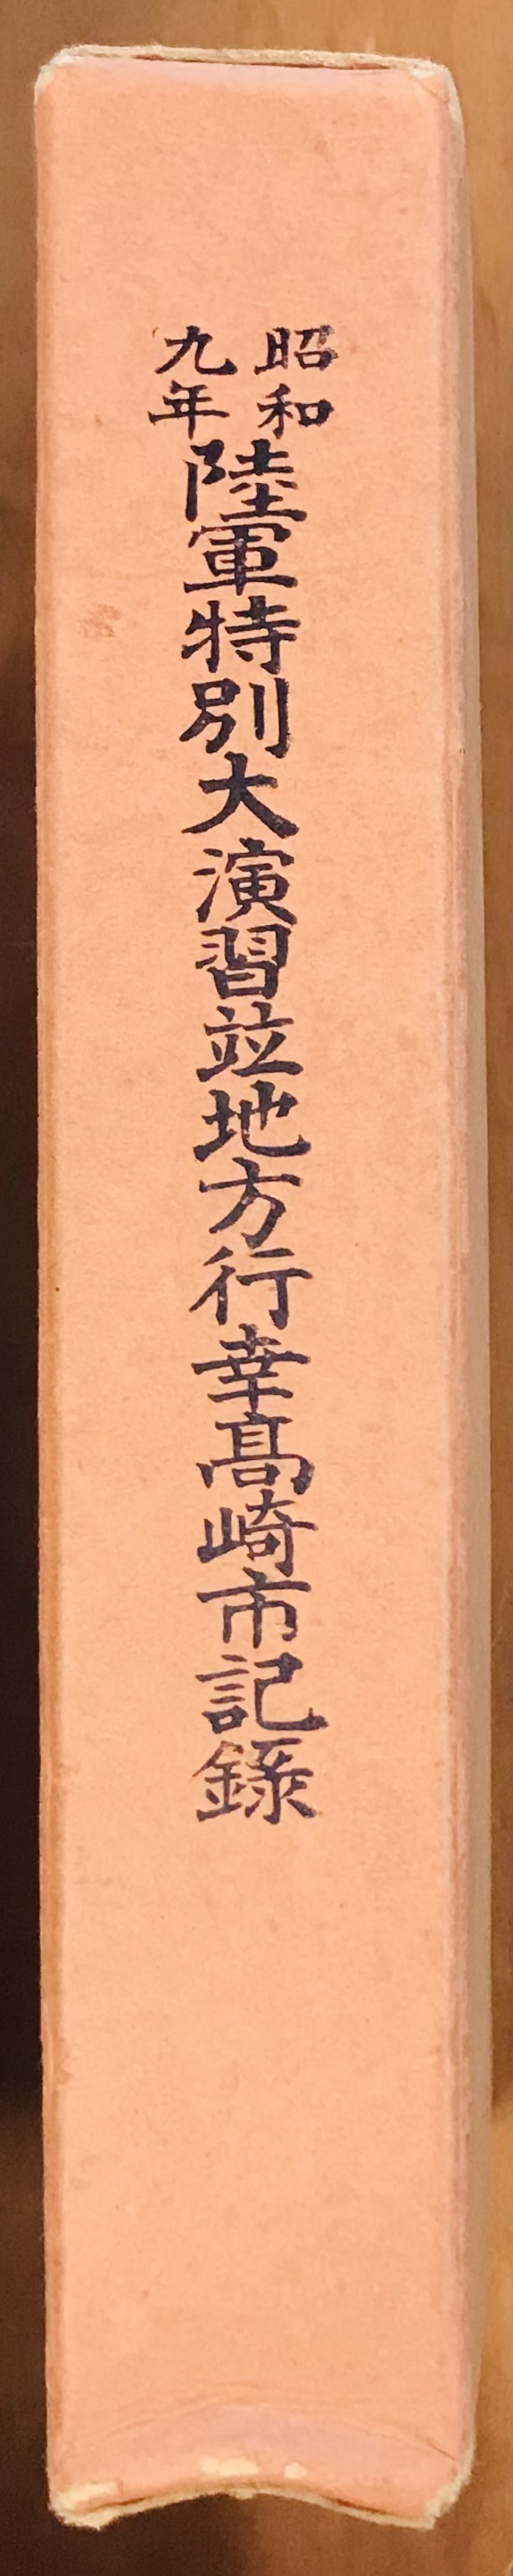 昭和
九年
陸軍特別大演習並地方行幸髙崎市記錄